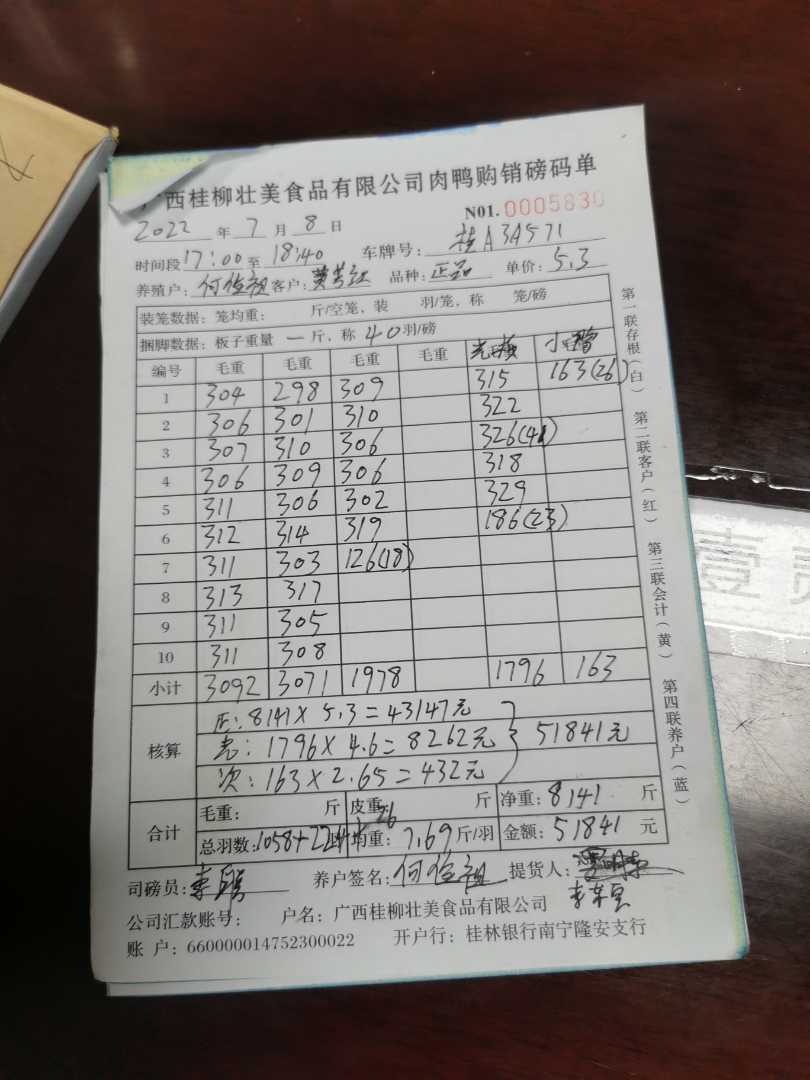 广西桂柳壮美食品有限公司肉鸭购销磅码单
N01. 0005830
2022 年 7 月 8 日
时间段 17:00 至 18:40 车牌号: 桂A3A571
养殖户: 何 客户: 黄 品种: 正品 单价: 5.3
装笼数据: 笼均重: 斤/空笼, 装 羽/笼, 称 笼/磅
捆脚数据: 板子重量 一 斤, 称 40 羽/磅
编号 毛重 毛重 毛重 毛重
1 304 298 309 315 163(26)
2 306 301 310 322
3 307 310 306 326(41)
4 306 309 306 318
5 311 306 302 329
6 312 314 319 186(23)
7 311 303 126(18)
8 313 317
9 311 305
10 311 308
小计 3092 3071 1978 1796 163
核算
正: 8141×5.3=43147元
壳: 1796×4.6=8262元
次: 163×2.65=432元
51841元
合计
毛重: 斤 皮重: 斤 净重: 8141 斤
总羽数: 1058+224+26 均重: 7.69 斤/羽 金额: 51841 元
司磅员: 养户签名: 何 提货人:
公司汇款账号: 户名: 广西桂柳壮美食品有限公司
账 户: 660000014752300022 开户行: 桂林银行南宁隆安支行
第一联存根(白) 第二联客户(红) 第三联会计(黄) 第四联养户(蓝)
壹